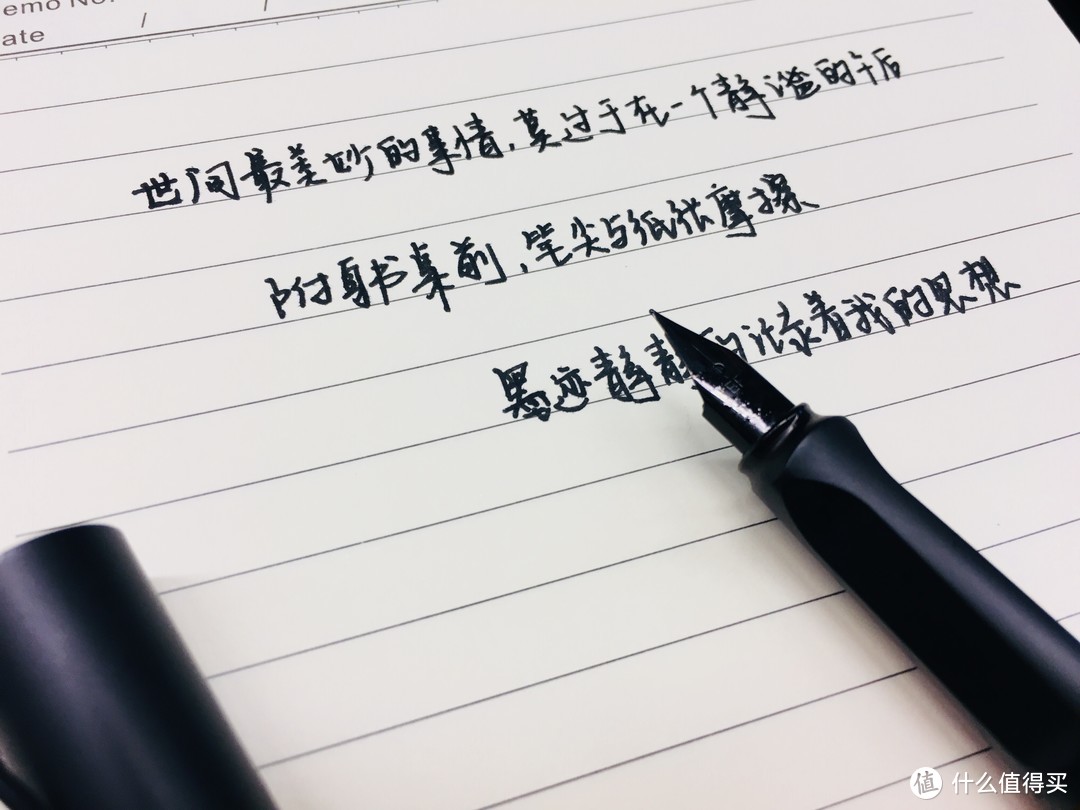 emo No.
ate / /
世间最美妙的事情,莫过于在一个静谧的午后
附身书桌前,笔尖与纸张摩擦
墨迹静静的记录着我的思想
值 什么值得买